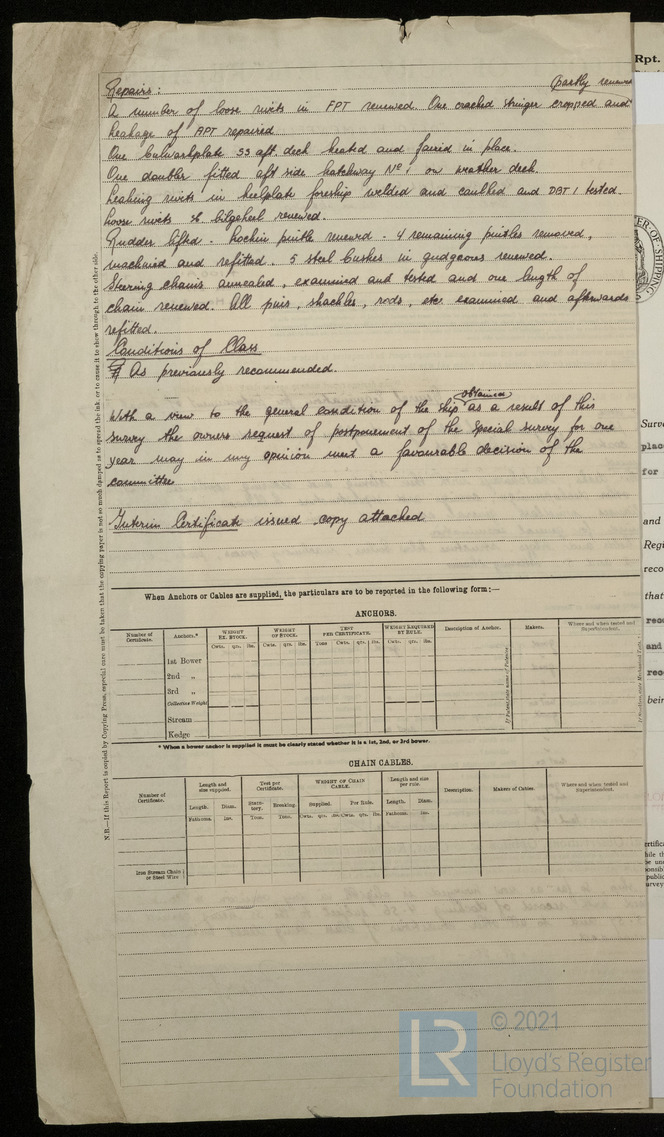 Rpt.
Repairs:
partly renewed
A number of loose rivits in FPT renewed. One cracked stringer cropped and
leakage of APT repaired
One bulwarkplate SS aft. deck heated and faired in place.
One doubler fitted aft side hatchway No 1 on weather deck.
Leaking rivits in keelplate foreship welded and caulked and DBT 1 tested.
Loose rivets bilgekeel renewed.
Rudder lifted - Lockin pintle renewed - 4 remaining pintles removed,
machined and refitted. 5 steel bushes in gudgeons renewed.
Steering chains annealed, examined and tested and one length of
chain renewed. All pins, shackles, rods, etc. examined and afterwards
refitted.
Conditions of Class
As previously recommended.
obtained
With a view to the general condition of the ship as a result of this
survey the owners request of postponement of the special survey for one
year may in my opinion meet a favourable decision of the
committee
Interim Certificate issued copy attached
N.B.—If this Report is copied by Copying Press, especial care must be taken that the copying paper is not so much damped as to spread the ink, or to cause it to show through to the other side.
When Anchors or Cables are supplied, the particulars are to be reported in the following form:—
ANCHORS.
Number of Certificate. Anchors.* WEIGHT EX. STOCK. WEIGHT OF STOCK. TEST PER CERTIFICATE. WEIGHT REQUIRED BY RULE. Description of Anchor. Makers. Where and when tested and Superintendent.
Cwts. qrs. lbs. Cwts. qrs. lbs. Tons Cwts. qrs. lbs. Cwts. qrs. lbs.
1st Bower
2nd „
3rd „
Collective Weight
Stream
Kedge
* When a bower anchor is supplied it must be clearly stated whether it is a 1st, 2nd, or 3rd bower.
CHAIN CABLES.
Number of Certificate. Length and size supplied. Test per Certificate. WEIGHT OF CHAIN CABLE. Length and size per rule. Description. Makers of Cables. Where and when tested and Superintendent.
Length. Diam. Statutory. Breaking. Supplied. Per Rule. Length. Diam.
Fathoms. Ins. Tons. Tons. Cwts. qrs. lbs. Cwts. qrs. lbs. Fathoms. Ins.
Iron Stream Chain or Steel Wire
LR
© 2021
Lloyd's Register
Foundation